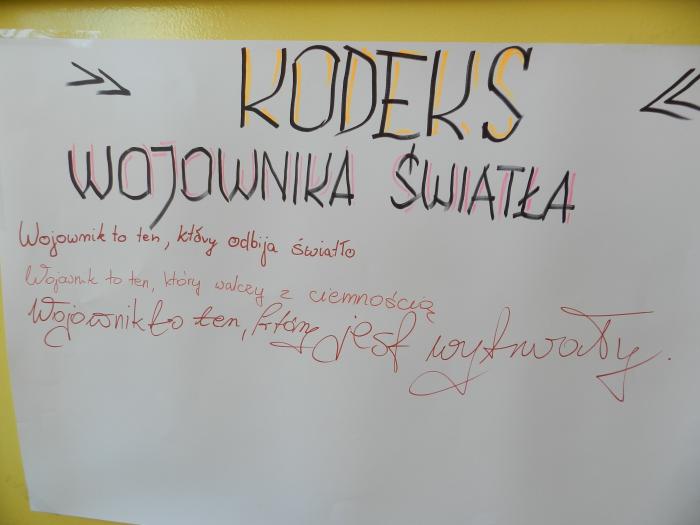 KODEKS
WOJOWNIKA ŚWIATŁA
Wojownik to ten, który odbija światło
Wojownik to ten, który walczy z ciemnością
Wojownik to ten, który jest wytrwały.